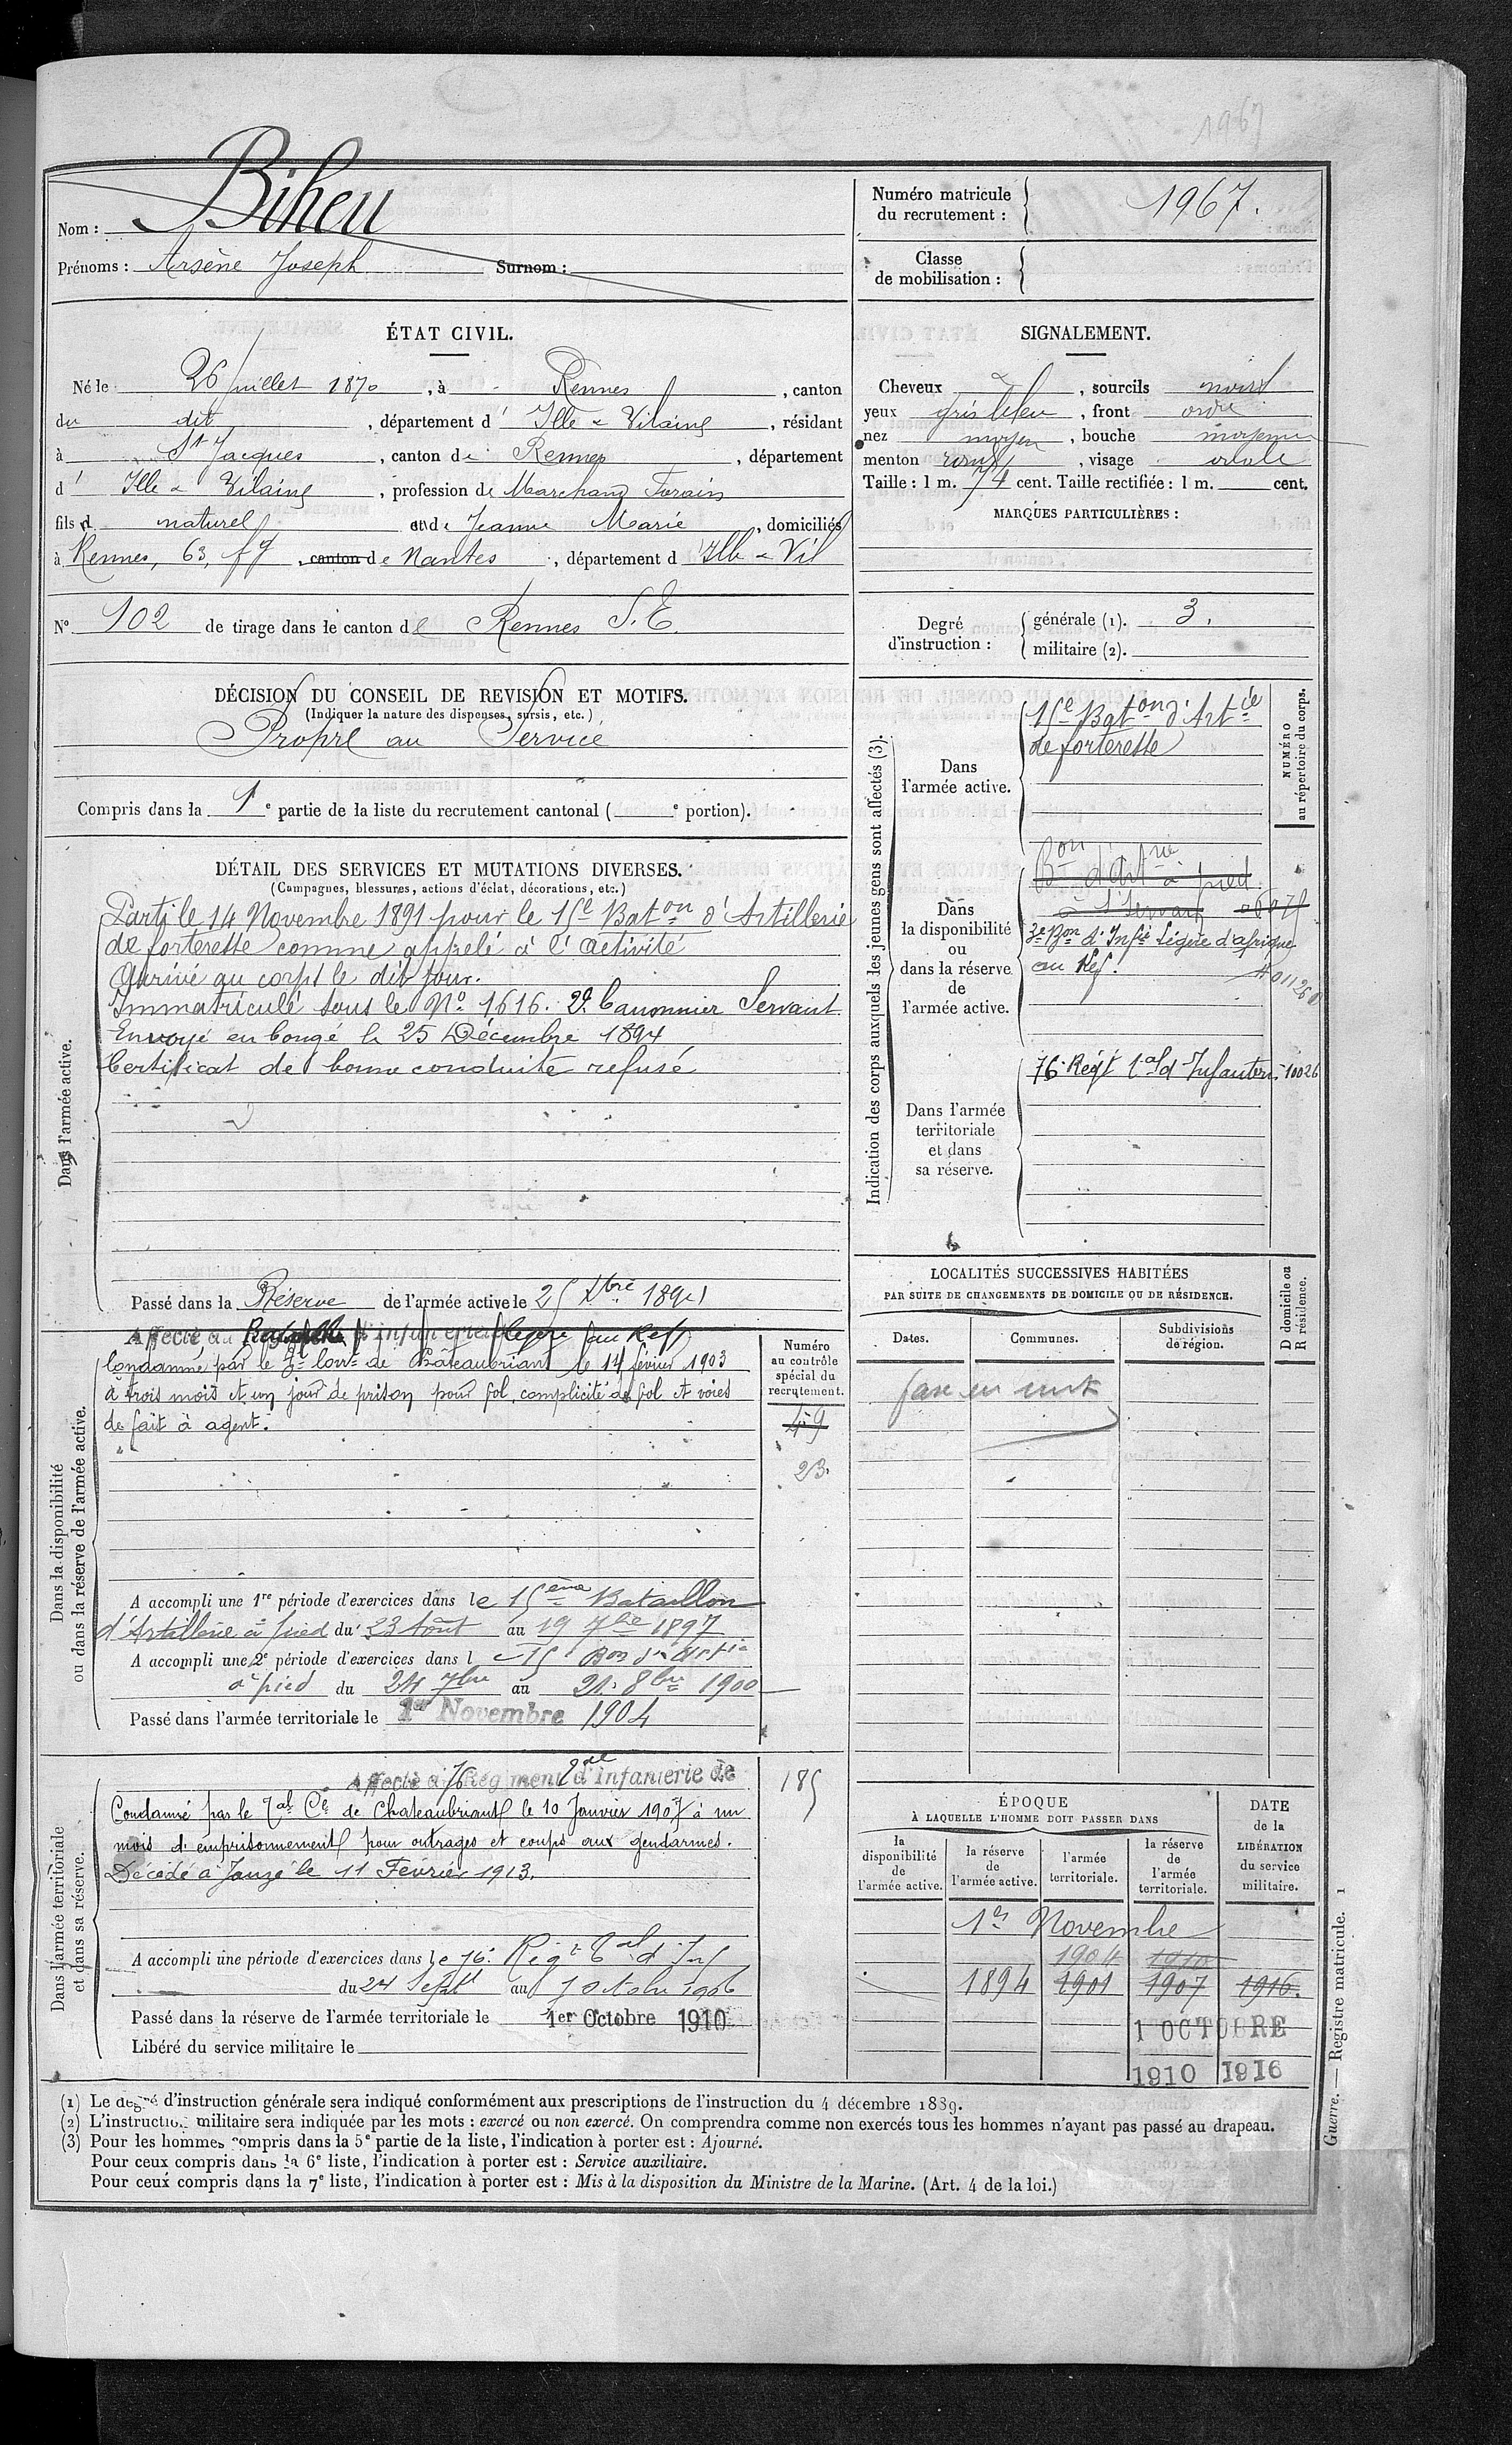 1967
Nom : Biheu
Prénoms : Arsène Joseph Surnom :
Numéro matricule du recrutement : 1967.
Classe de mobilisation :
ÉTAT CIVIL.
Né le 26 juillet 1870, à Rennes, canton
du dit, département d' Ille & Vilaine, résidant
à St Jacques, canton de Rennes, département
d' Ille & Vilaine, profession de Marchand Forain
fils d naturel et de Jeanne Marie, domiciliés
à Rennes, 63, fg, canton de Nantes, département d Ille & Vil
N° 102 de tirage dans le canton de Rennes S. E.
SIGNALEMENT.
Cheveux, sourcils noirs
yeux gris bleu, front ordre
nez moyen, bouche moyenne
menton rond, visage ovale
Taille : 1 m. 74 cent. Taille rectifiée : 1 m. cent.
MARQUES PARTICULIÈRES :
Degré d'instruction :
générale (1). 3.
militaire (2).
DÉCISION DU CONSEIL DE REVISION ET MOTIFS.
(Indiquer la nature des dispenses, sursis, etc.)
Propre au Service
Compris dans la 1e partie de la liste du recrutement cantonal ( e portion).
DÉTAIL DES SERVICES ET MUTATIONS DIVERSES.
(Campagnes, blessures, actions d'éclat, décorations, etc.)
Dans l'armée active.
Parti le 14 Novembre 1891 pour le 15e Baton d'Artillerie
de forteresse comme appelé à l'activité
Arrivé au corps le dit jour.
Immatriculé sous le No 1616. 2e Canonnier Servant.
Envoyé en Congé le 25 Décembre 1894
Certificat de bonne conduite refusé
Passé dans la Réserve de l'armée active le 25 Xbre 1894
Indication des corps auxquels les jeunes gens sont affectés (3).
NUMÉRO au répertoire du corps.
Dans l'armée active.
15e Baton d'Artie
de forteresse
Dans la disponibilité ou dans la réserve de l'armée active.
Bon d'Artrie à pied
à St Servan
3e Bon d'Infie Légère d'afrique
au Kef.
Dans l'armée territoriale et dans sa réserve.
76 Régt Tal d'Infanterie 10026
Dans la disponibilité ou dans la réserve de l'armée active.
Affecté au Bataillon d'infanterie légère au Keff
Condamné par le Tal Correl de Châteaubriant le 14 février 1903
à trois mois et un jour de prison pour vol, complicité de vol et voies
de fait à agent.
Numéro au contrôle spécial du recrutement.
49
23.
A accompli une 1re période d'exercices dans le 15ème Bataillon
d'Artillerie à pied du 23 Août au 19 7bre 1897
A accompli une 2e période d'exercices dans le 15e Bon d'Artie
à pied du 24 7bre au 21 8bre 1900
Passé dans l'armée territoriale le 1er Novembre 1904
LOCALITÉS SUCCESSIVES HABITÉES
PAR SUITE DE CHANGEMENTS DE DOMICILE OU DE RÉSIDENCE.
Dates. Communes. Subdivisions de région. D domicile ou R résidence.
Dans l'armée territoriale et dans sa réserve.
Affecté au 76 Régiment Tal d'Infanterie de
185
Condamné par le Tal Cel de Chateaubriant le 10 Janvier 1907 à un
mois d'emprisonnement pour outrages et coups aux gendarmes.
Décédé à Janzé le 11 Février 1913.
A accompli une période d'exercices dans le 76e Régt Tal d'Inf
du 24 Septe au 7 Octobre 1906
Passé dans la réserve de l'armée territoriale le 1er Octobre 1910
Libéré du service militaire le
ÉPOQUE
À LAQUELLE L'HOMME DOIT PASSER DANS
la disponibilité de l'armée active. la réserve de l'armée active. l'armée territoriale. la réserve de l'armée territoriale.
DATE de la LIBÉRATION du service militaire.
1er Novembre
1904 1910
1894 1901 1907 1916.
1 OCTOBRE
1910 1916
(1) Le degré d'instruction générale sera indiqué conformément aux prescriptions de l'instruction du 4 décembre 1889.
(2) L'instruction militaire sera indiquée par les mots : exercé ou non exercé. On comprendra comme non exercés tous les hommes n'ayant pas passé au drapeau.
(3) Pour les hommes compris dans la 5e partie de la liste, l'indication à porter est : Ajourné.
Pour ceux compris dans la 6e liste, l'indication à porter est : Service auxiliaire.
Pour ceux compris dans la 7e liste, l'indication à porter est : Mis à la disposition du Ministre de la Marine. (Art. 4 de la loi.)
Guerre. — Registre matricule. 1